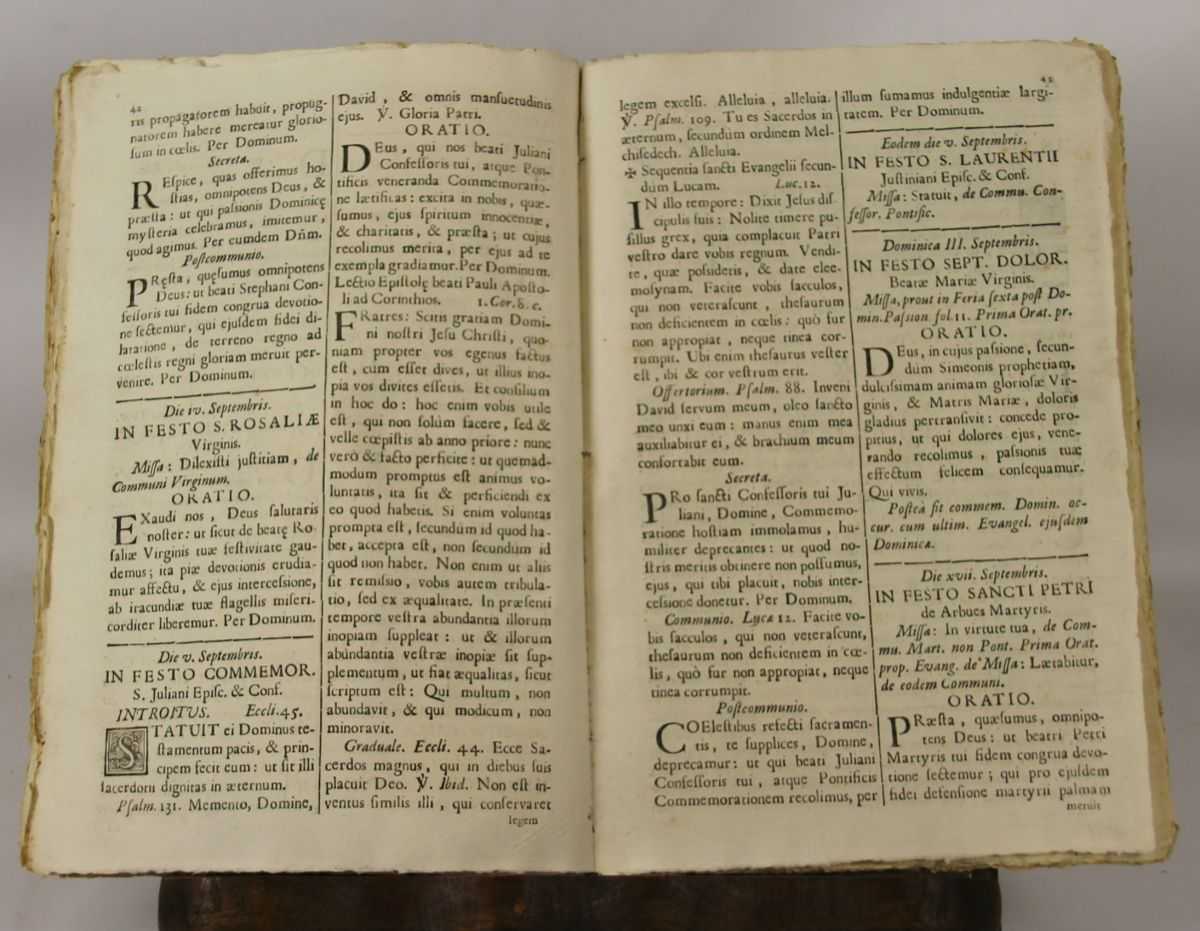 42
ris propagatorem habuit, propug-
natorem habere mereatur glorio-
sum in cœlis. Per Dominum.
Secreta.
REspice, quas offerimus ho-
stias, omnipotens Deus, &
præsta: ut qui passionis Dominicę
mysteria celebramus, imitemur,
quod agimus. Per eumdem Dñm.
Postcommunio.
PRęsta, quęsumus omnipotens
Deus: ut beati Stephani Con-
fessoris tui fidem congrua devotio-
ne sectemur, qui ejusdem fidei di-
latatione, de terreno regno ad
cœlestis regni gloriam meruit per-
venire. Per Dominum.
Die iv. Septembris.
IN FESTO S. ROSALIÆ
Virginis.
Missa: Dilexisti justitiam, de
Communi Virginum.
ORATIO.
EXaudi nos, Deus salutaris
noster: ut sicut de beatę Ro-
saliæ Virginis tuæ festivitate gau-
demus; ita piæ devotionis erudia-
mur affectu, & ejus intercessione,
ab iracundiæ tuæ flagellis miseri-
corditer liberemur. Per Dominum.
Die v. Septembris.
IN FESTO COMMEMOR.
S. Juliani Episc. & Conf.
INTROITUS. Eccli. 45.
STATUIT ei Dominus te-
stamentum pacis, & prin-
cipem fecit eum: ut sit illi
sacerdotii dignitas in æternum.
Psalm. 131. Memento, Domine,
David, & omnis mansuetudinis
ejus. ℣. Gloria Patri.
ORATIO.
DEus, qui nos beati Juliani
Confessoris tui, atque Pon-
tificis veneranda Commemoratio-
ne lætificas: excita in nobis, quæ-
sumus, ejus spiritum innocentiæ,
& charitatis, & præsta; ut cujus
recolimus merita, per ejus ad te
exempla gradiamur. Per Dominum.
Lectio Epistolę beati Pauli Aposto-
li ad Corinthios. 1. Cor. 8. c.
FRatres: Scitis gratiam Domi-
ni nostri Jesu Christi, quo-
niam propter vos egenus factus
est, cum esset dives, ut illius ino-
pia vos divites essetis. Et consilium
in hoc do: hoc enim vobis utile
est, qui non solùm facere, sed &
velle cœpistis ab anno priore: nunc
verò & facto perficite: ut quemad-
modum promptus est animus vo-
luntatis, ita sit & perficiendi ex
eo quod habetis. Si enim voluntas
prompta est, secundum id quod ha-
bet, accepta est, non secundum id
quod non habet. Non enim ut aliis
sit remissio, vobis autem tribula-
tio, sed ex æqualitate. In præsenti
tempore vestra abundantia illorum
inopiam suppleat: ut & illorum
abundantia vestræ inopiæ sit sup-
plementum, ut fiat æqualitas, sicut
scriptum est: Qui multum, non
abundavit, & qui modicum, non
minoravit.
Graduale. Eccli. 44. Ecce Sa-
cerdos magnus, qui in diebus suis
placuit Deo. ℣. Ibid. Non est in-
ventus similis illi, qui conservaret
legem
42
legem excelsi. Alleluia, alleluia.
℣. Psalm. 109. Tu es Sacerdos in
æternum, secundùm ordinem Mel-
chisedech. Alleluia.
✠ Sequentia sancti Evangelii secun-
dum Lucam. Luc. 12.
IN illo tempore: Dixit Jesus dis-
cipulis suis: Nolite timere pu-
sillus grex, quia complacuit Patri
vestro dare vobis regnum. Vendi-
te, quæ possidetis, & date elee-
mosynam. Facite vobis sacculos,
qui non veterascunt, thesaurum
non deficientem in cœlis: quò fur
non appropiat, neque tinea cor-
rumpit. Ubi enim thesaurus vester
est, ibi & cor vestrum erit.
Offertorium. Psalm. 88. Inveni
David servum meum, oleo sancto
meo unxi eum: manus enim mea
auxiliabitur ei, & brachium meum
confortabit eum.
Secreta.
PRo sancti Confessoris tui Ju-
liani, Domine, Commemo-
ratione hostiam immolamus, hu-
militer deprecantes: ut quod no-
stris meritis obtinere non possumus,
ejus, qui tibi placuit, nobis inter-
cessione donetur. Per Dominum.
Communio. Lucæ 12. Facite vo-
bis sacculos, qui non veterascunt,
thesaurum non deficientem in cœ-
lis, quò fur non appropiat, neque
tinea corrumpit.
Postcommunio.
COElestibus refecti sacramen-
tis, te supplices, Domine,
deprecamur: ut qui beati Juliani
Confessoris tui, atque Pontificis
Commemorationem recolimus, per
illum sumamus indulgentiæ largi-
tatem. Per Dominum.
Eodem die v. Septembris.
IN FESTO S. LAURENTII
Justiniani Episc. & Conf.
Missa: Statuit, de Commu. Con-
fessor. Pontific.
Dominica III. Septembris.
IN FESTO SEPT. DOLOR.
Beatæ Mariæ Virginis.
Missa, prout in Feria sexta post Do-
min. Passion. fol. 11. Prima Orat. pr.
ORATIO.
DEus, in cujus passione, secun-
dum Simeonis prophetiam,
dulcissimam animam gloriosæ Vir-
ginis, & Matris Mariæ, doloris
gladius pertransivit: concede pro-
pitius, ut qui dolores ejus, vene-
rando recolimus, passionis tuæ
effectum felicem consequamur.
Qui vivis.
Postea fit commem. Domin. oc-
cur. cum ultim. Evangel. ejusdem
Dominicæ.
Die xvii. Septembris.
IN FESTO SANCTI PETRI
de Arbues Martyris.
Missa: In virtute tua, de Com-
mu. Mart. non Pont. Prima Orat.
prop. Evang. de Missa: Lætabitur,
de eodem Communi.
ORATIO.
PRæsta, quæsumus, omnipo-
tens Deus: ut beatri Petri
Martyris tui fidem congrua devo-
tione sectemur; qui pro ejusdem
fidei defensione martyrii palmam
meruit